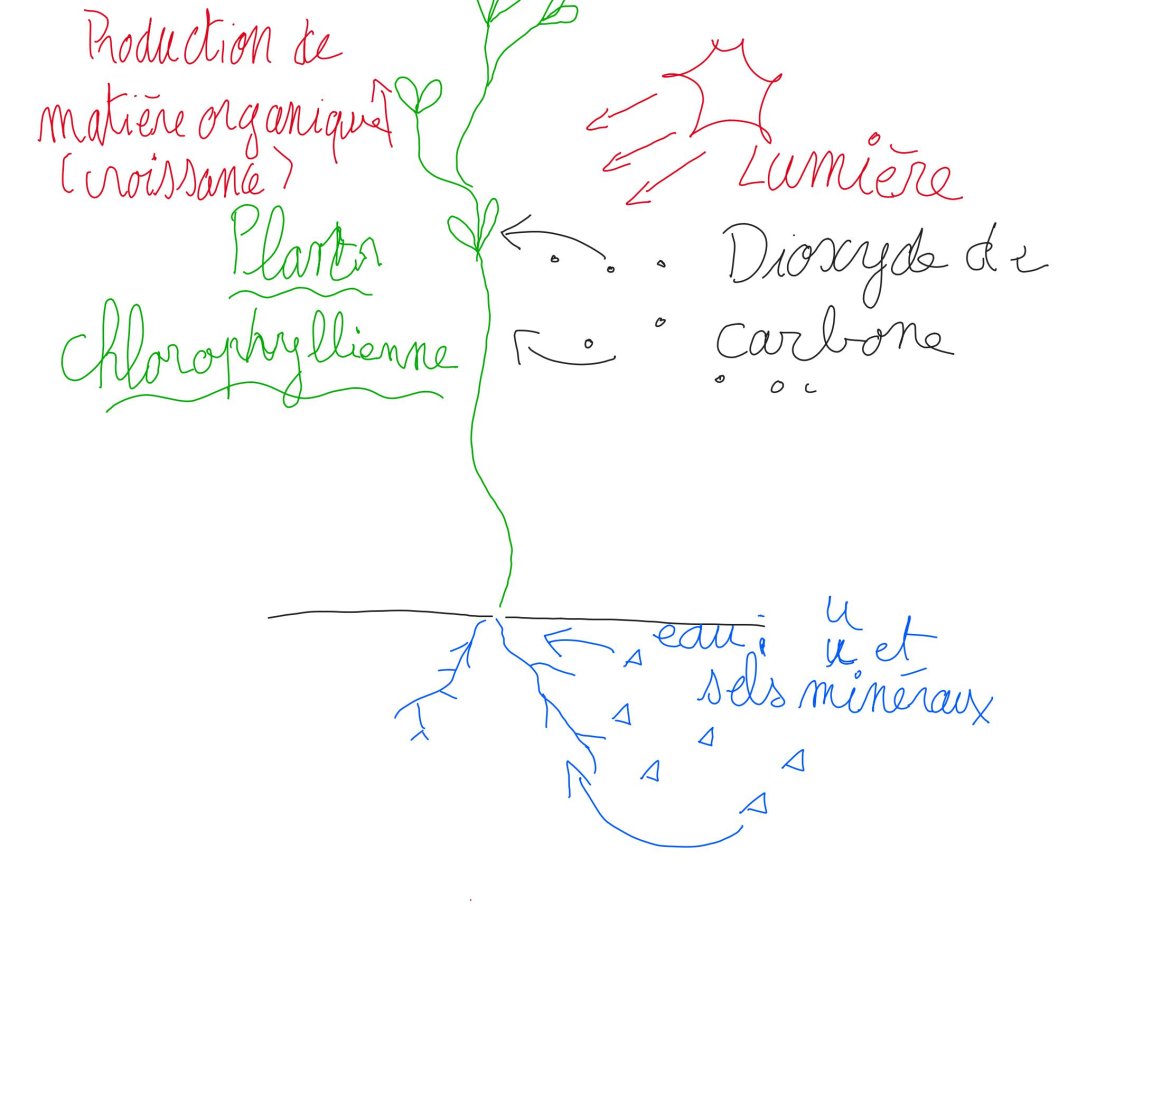 Production de
matière organique
(croissance)
Lumière
Plante
chlorophyllienne
Dioxyde de
carbone
eau; u
u et
sels minéraux